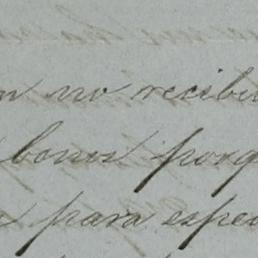 n no recibi
bonos porq
para espec